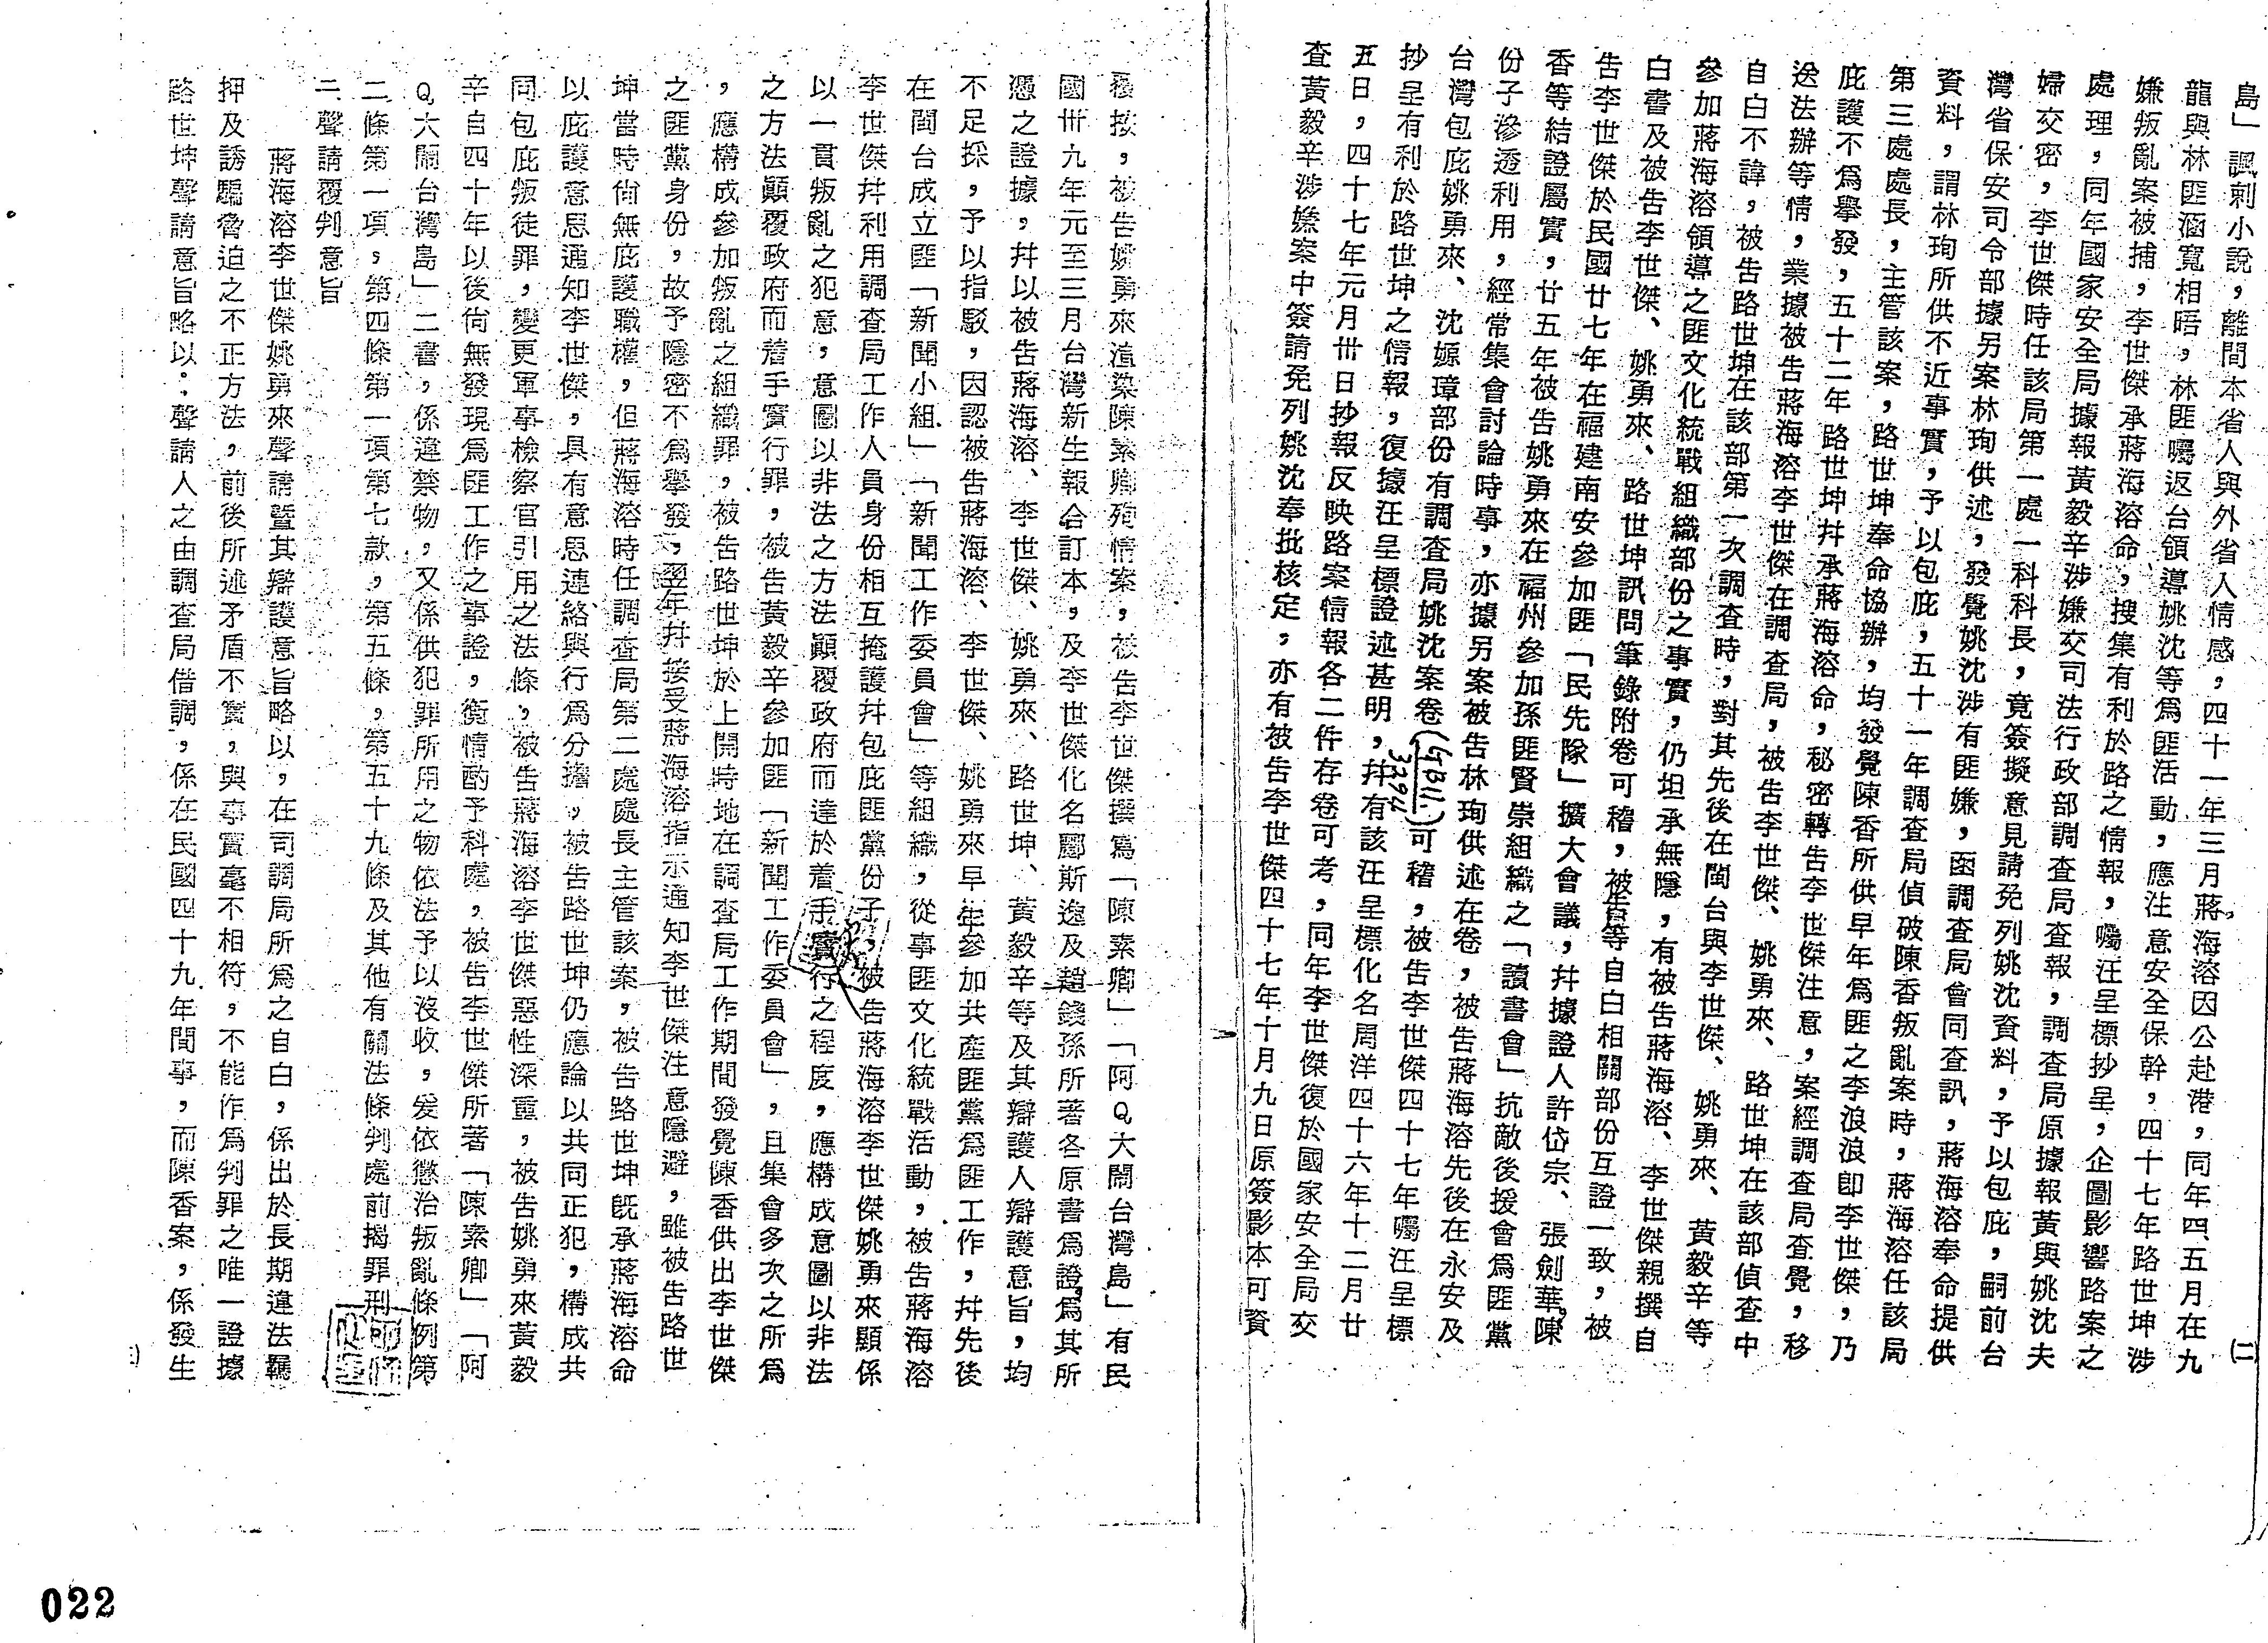 島」諷刺小說，離間本省人與外省人情感，四十一年三月蔣海溶因公赴港，同年四、五月在九
龍與林匪涵寬相晤，林匪囑返台領導姚沈等為匪活動，應注意安全保幹，四十七年路世坤涉
嫌叛亂案被捕，李世傑承蔣海溶命，搜集有利於路之情報，囑汪呈標抄呈，企圖影響路案之
處理，同年國家安全局據報黃毅辛涉嫌交司法行政部調查局查報，調查局原據報黃與姚沈夫
婦交密，李世傑時任該局第一處一科科長，竟簽擬意見請免列姚沈資料，予以包庇，嗣前台
灣省保安司令部據另案林珣供述，發覺姚沈涉有匪嫌，函調查局會同查訊，蔣海溶奉命提供
資料，謂林珣所供不近事實，予以包庇，五十一年調查局偵破陳香叛亂案時，蔣海溶任該局
第三處處長，主管該案，路世坤奉命協辦，均發覺陳香所供早年為匪之李浪浪即李世傑，乃
庇護不為舉發，五十二年路世坤幷承蔣海溶命，秘密轉告李世傑注意，案經調查局查覺，移
送法辦等情，業據被告蔣海溶李世傑在調查局，被告李世傑、姚勇來、路世坤在該部偵查中
自白不諱，被告路世坤在該部第一次調查時，對其先後在閩台與李世傑、姚勇來、黃毅辛等
參加蔣海溶領導之匪文化統戰組織部份之事實，仍坦承無隱，有被告蔣海溶、李世傑親撰自
白書及被告李世傑、姚勇來、路世坤訊問筆錄附卷可稽，被告等自白相關部份互證一致，被
告李世傑於民國廿七年在福建南安參加匪「民先隊」擴大會議，幷據證人許岱宗、張劍華、陳
香等結證屬實，廿五年被告姚勇來在福州參加孫匪賢崇組織之「讀書會」抗敵後援會為匪黨
份子滲透利用，經常集會討論時事，亦據另案被告林珣供述在卷，被告蔣海溶先後在永安及
台灣包庇姚勇來、沈嫄璋部份有調查局姚沈案卷（　3294）可稽，被告李世傑四十七年囑汪呈標
抄呈有利於路世坤之情報，復據汪呈標證述甚明，幷有該汪呈標化名周洋四十六年十二月廿
五日，四十七年元月卅日抄報反映路案情報各二件存卷可考，同年李世傑復於國家安全局交
查黃毅辛涉嫌案中簽請免列姚沈奉批核定，亦有被告李世傑四十七年十月九日原簽影本可資
(二)
覆按，被告姚勇來渲染陳素卿殉情案，被告李世傑撰寫「陳素卿」「阿Q大鬧台灣島」有民
國卅九年元至三月台灣新生報合訂本，及李世傑化名酈斯逸及趙錢孫所著各原書為證，為其所
憑之證據，幷以被告蔣海溶、李世傑、姚勇來、路世坤、黃毅辛等及其辯護人辯護意旨，均
不足採，予以指駁，因認被告蔣海溶、李世傑、姚勇來早年參加共產匪黨為匪工作，幷先後
在閩台成立匪「新聞小組」「新聞工作委員會」等組織，從事匪文化統戰活動，被告蔣海溶
李世傑幷利用調查局工作人員身份相互掩護幷包庇匪黨份子，被告蔣海溶李世傑姚勇來顯係
以一貫叛亂之犯意，意圖以非法之方法顚覆政府而達於着手實行之程度，應構成意圖以非法
之方法顚覆政府而着手實行罪，被告黃毅辛參加匪「新聞工作委員會」，且集會多次之所為
，應構成參加叛亂之組織罪，被告路世坤於上開時地在調查局工作期間發覺陳香供出李世傑
之匪黨身份，故予隱密不為舉發，翌年幷接受蔣海溶指示通知李世傑注意隱避，雖被告路世
坤當時尙無庇護職權，但蔣海溶時任調查局第二處處長主管該案，被告路世坤旣承蔣海溶命
以庇護意思通知李世傑，具有意思連絡與行為分擔，被告路世坤仍應論以共同正犯，構成共
同包庇叛徒罪，變更軍事檢察官引用之法條，被告蔣海溶李世傑惡性深重，被告姚勇來黃毅
辛自四十年以後尙無發現為匪工作之事證，衡情酌予科處，被告李世傑所著「陳素卿」「阿
Q大鬧台灣島」二書，係違禁物，又係供犯罪所用之物依法予以沒收，爰依懲治叛亂條例第
二條第一項，第四條第一項第七款，第五條，第五十九條及其他有關法條判處前揭罪刑
二、聲請覆判意旨
蔣海溶李世傑姚勇來聲請暨其辯護意旨略以，在司調局所為之自白，係出於長期違法羈
押及誘騙脅迫之不正方法，前後所述矛盾不實，與事實毫不相符，不能作為判罪之唯一證據
路世坤聲請意旨略以：聲請人之由調查局借調，係在民國四十九年間事，而陳香案，係發生
022